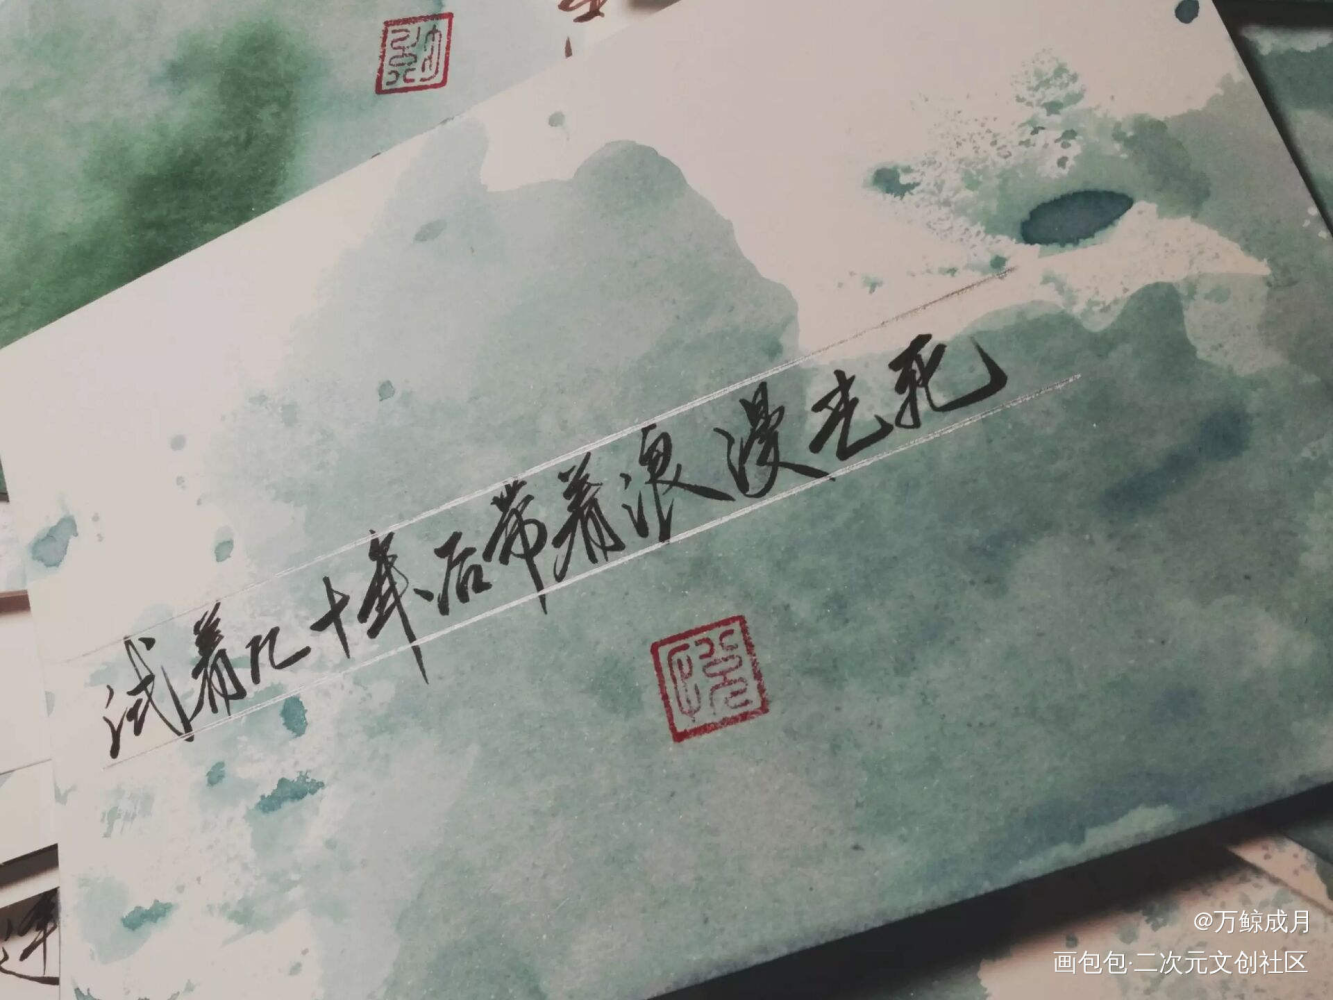 试着几十年后带着浪漫老死
@万鲸成月
画包包·二次元文创社区